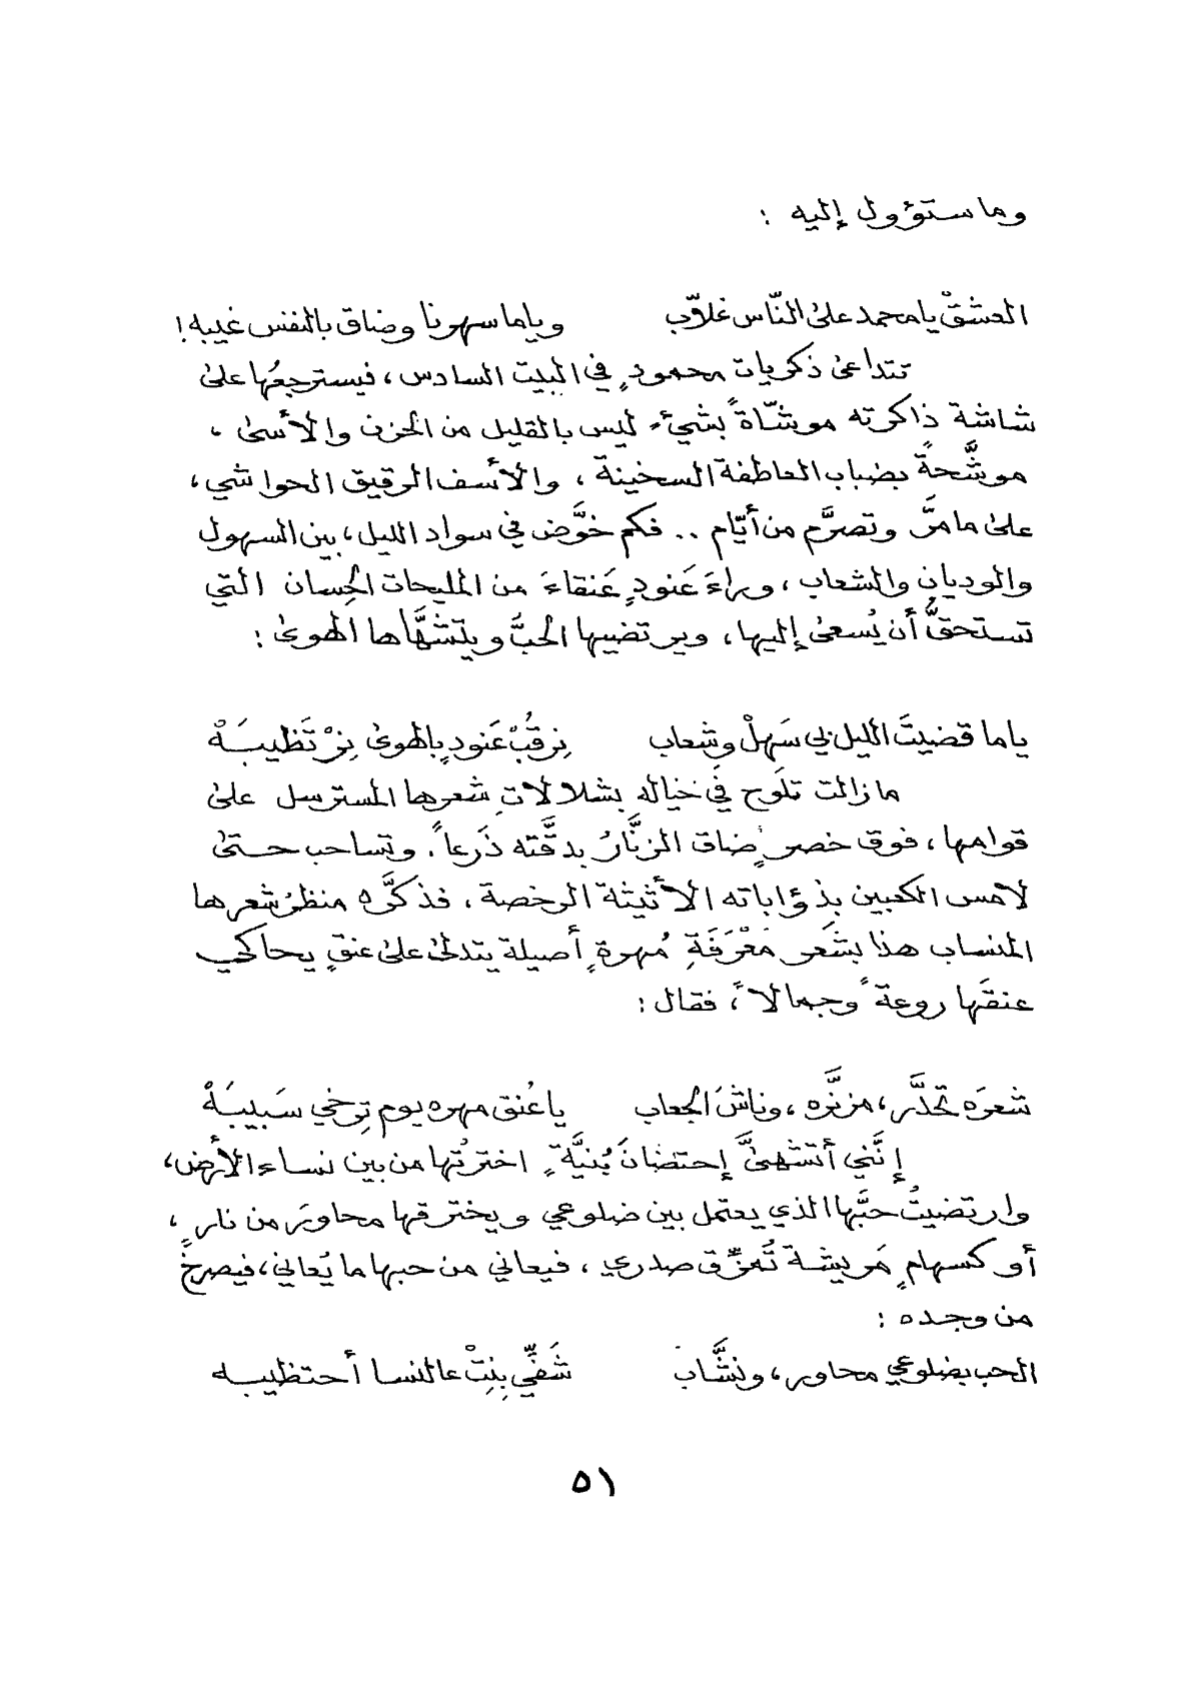 وما ستؤول إليه :
العشقْ يا محمد على النّاس غلاّب    وياما سهرنا وضاق بالنفس غيبه !
تتداعى ذكريات محمودٍ في البيت السادس ، فيسترجعُها على
شاشة ذاكرته موشّاةً بشيءٍ ليس بالقليل من الحزن والأسى ،
موشَّحةً بضباب العاطفة السخينة ، والأسف الرقيق الحواشي ،
على ما مرَّ وتصرَّم من أيّام .. فكم خوَّض في سواد الليل ، بين السهول
والوديان والشعاب ، وراءَ عَنودٍ عَنقاءَ من المليحات الحِسان التي
تستحقُّ أن يُسعى إليها ، ويرتضيها الحبُّ ويتشهَّاها الهوى :
ياما قضيتَ الليل بي سَهلْ وشِعاب    نِرقُبْ عَنودٍ بالهوى نِرْتَظيبَهْ
ما زالت تلَوح في خياله بشلالاتِ شعرها المسترسل على
قوامها ، فوق خصرٍ ضاق الزنَّارُ بدقَّته ذَرعاً . وتساحب حتى
لامس الكعبين بذؤاباته الأثيثة الرخصة ، فذكَّره منظرُ شعرها
المنساب هذا بشَعر مَعْرَفَةِ مُهرةٍ أصيلة يتدلى على عنقٍ يحاكي
عنقَها روعةً وجمالاً ، فقال :
شعرَه تحَدَّر ، مزنَّره ، وناشَ الجعاب    يا عُنق مهره يوم تِرخي سَبيبَهْ
إنَّني أتشهىَّ إحتضانَ بُنيَّةٍ اخترتُها من بين نساء الأرض ،
وارتضيتُ حبَّها الذي يعتمل بين ضلوعي ويخترقها محاورَ من نارٍ ،
أو كسهامٍ مَريشة تُمزِّق صدري ، فيعاني من حبها ما يُعاني ، فيصرخُ
من وجده :
الحب بضلوعي محاور ، ونشَّاب    شَفِّي بِنِتْ عالنسا أحتظيبه
٥١